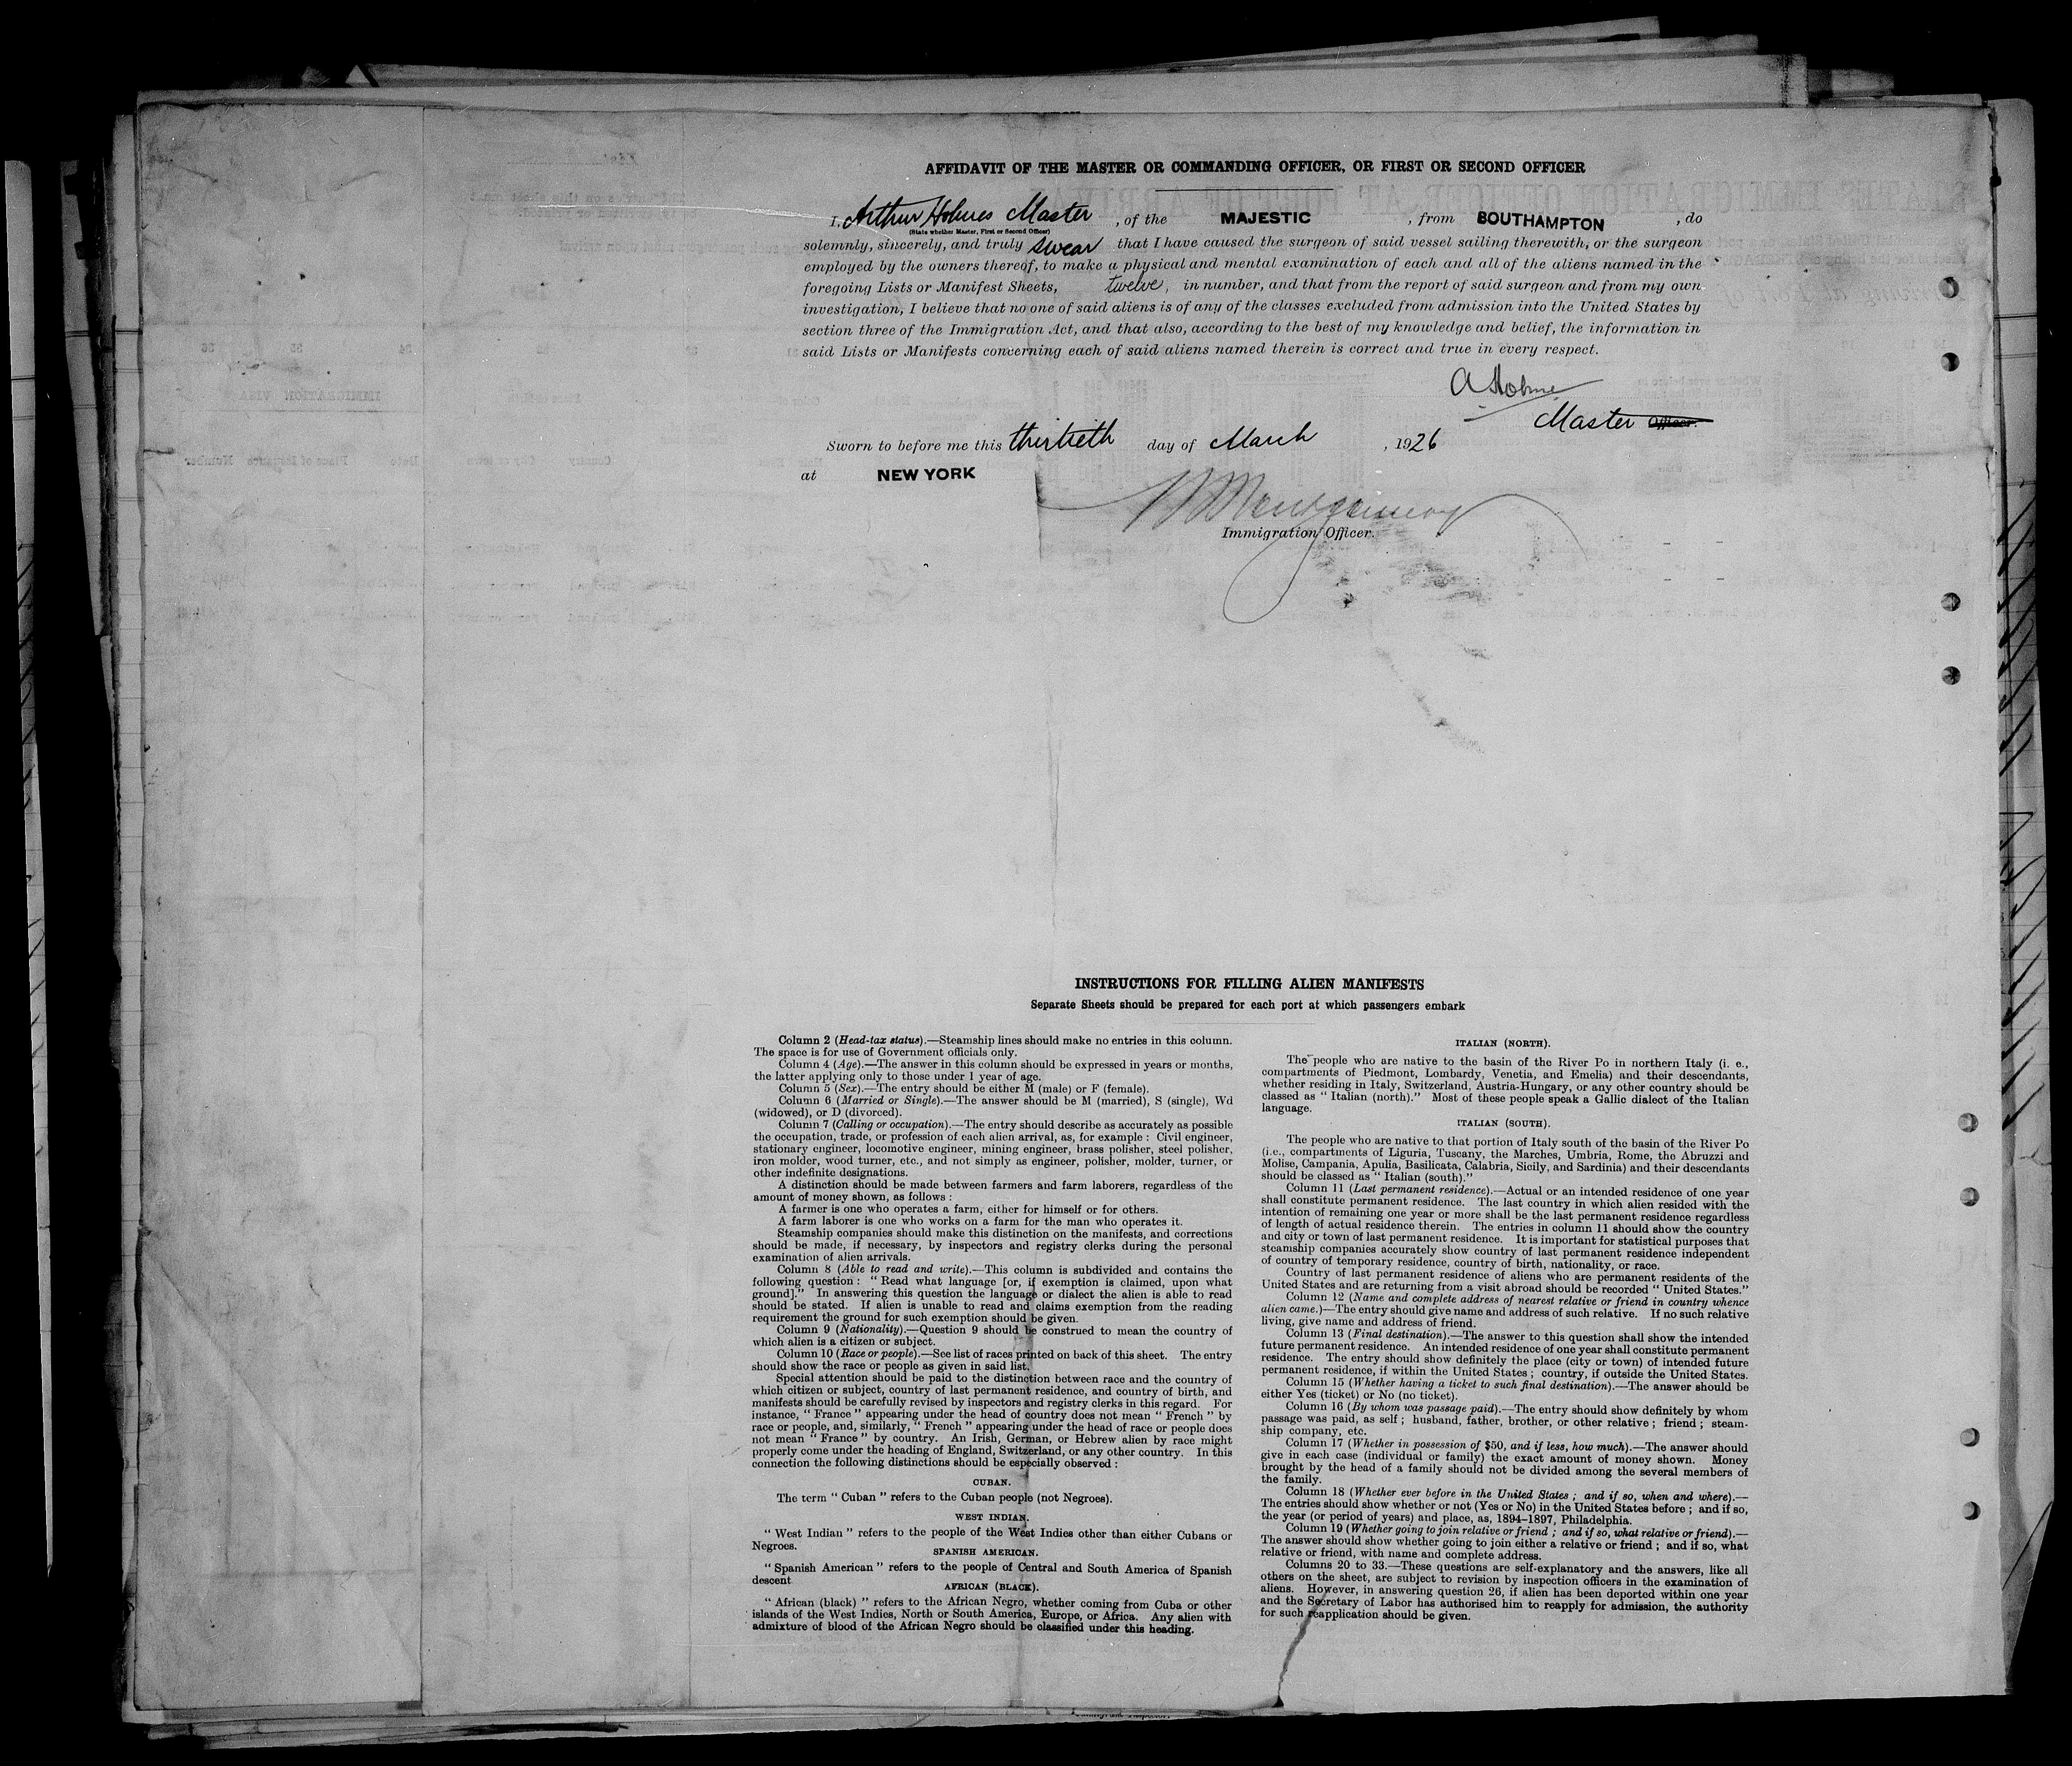 AFFIDAVIT OF THE MASTER OR COMMANDING OFFICER, OR FIRST OR SECOND OFFICER
I, Arthur Holmes Master, of the MAJESTIC, from BOUTHAMPTON, do
(State whether Master, First or Second Officer)
solemnly, sincerely, and truly swear that I have caused the surgeon of said vessel sailing therewith, or the surgeon
employed by the owners thereof, to make a physical and mental examination of each and all of the aliens named in the
foregoing Lists or Manifest Sheets, twelve, in number, and that from the report of said surgeon and from my own
investigation, I believe that no one of said aliens is of any of the classes excluded from admission into the United States by
section three of the Immigration Act, and that also, according to the best of my knowledge and belief, the information in
said Lists or Manifests concerning each of said aliens named therein is correct and true in every respect.
A Holme
Master Officer.
Sworn to before me this thirtieth day of March, 1926
at NEW YORK
Montgomery
Immigration Officer.
INSTRUCTIONS FOR FILLING ALIEN MANIFESTS
Separate Sheets should be prepared for each port at which passengers embark
Column 2 (Head-tax status).—Steamship lines should make no entries in this column.
The space is for use of Government officials only.
Column 4 (Age).—The answer in this column should be expressed in years or months,
the latter applying only to those under 1 year of age.
Column 5 (Sex).—The entry should be either M (male) or F (female).
Column 6 (Married or Single).—The answer should be M (married), S (single), Wd
(widowed), or D (divorced).
Column 7 (Calling or occupation).—The entry should describe as accurately as possible
the occupation, trade, or profession of each alien arrival, as, for example : Civil engineer,
stationary engineer, locomotive engineer, mining engineer, brass polisher, steel polisher,
iron molder, wood turner, etc., and not simply as engineer, polisher, molder, turner, or
other indefinite designations.
A distinction should be made between farmers and farm laborers, regardless of the
amount of money shown, as follows :
A farmer is one who operates a farm, either for himself or for others.
A farm laborer is one who works on a farm for the man who operates it.
Steamship companies should make this distinction on the manifests, and corrections
should be made, if necessary, by inspectors and registry clerks during the personal
examination of alien arrivals.
Column 8 (Able to read and write).—This column is subdivided and contains the
following question : “ Read what language [or, if exemption is claimed, upon what
ground].” In answering this question the language or dialect the alien is able to read
should be stated. If alien is unable to read and claims exemption from the reading
requirement the ground for such exemption should be given.
Column 9 (Nationality).—Question 9 should be construed to mean the country of
which alien is a citizen or subject.
Column 10 (Race or people).—See list of races printed on back of this sheet. The entry
should show the race or people as given in said list.
Special attention should be paid to the distinction between race and the country of
which citizen or subject, country of last permanent residence, and country of birth, and
manifests should be carefully revised by inspectors and registry clerks in this regard. For
instance, “ France ” appearing under the head of country does not mean “ French ” by
race or people, and, similarly, “ French ” appearing under the head of race or people does
not mean “ France ” by country. An Irish, German, or Hebrew alien by race might
properly come under the heading of England, Switzerland, or any other country. In this
connection the following distinctions should be especially observed :
CUBAN.
The term “ Cuban ” refers to the Cuban people (not Negroes).
WEST INDIAN.
“ West Indian ” refers to the people of the West Indies other than either Cubans or
Negroes.
SPANISH AMERICAN.
“ Spanish American ” refers to the people of Central and South America of Spanish
descent
AFRICAN (BLACK).
“ African (black) ” refers to the African Negro, whether coming from Cuba or other
islands of the West Indies, North or South America, Europe, or Africa. Any alien with
admixture of blood of the African Negro should be classified under this heading.
ITALIAN (NORTH).
The people who are native to the basin of the River Po in northern Italy (i. e.,
compartments of Piedmont, Lombardy, Venetia, and Emelia) and their descendants,
whether residing in Italy, Switzerland, Austria-Hungary, or any other country should be
classed as “ Italian (north).” Most of these people speak a Gallic dialect of the Italian
language.
ITALIAN (SOUTH).
The people who are native to that portion of Italy south of the basin of the River Po
(i.e., compartments of Liguria, Tuscany, the Marches, Umbria, Rome, the Abruzzi and
Molise, Campania, Apulia, Basilicata, Calabria, Sicily, and Sardinia) and their descendants
should be classed as “ Italian (south).”
Column 11 (Last permanent residence).—Actual or an intended residence of one year
shall constitute permanent residence. The last country in which alien resided with the
intention of remaining one year or more shall be the last permanent residence regardless
of length of actual residence therein. The entries in column 11 should show the country
and city or town of last permanent residence. It is important for statistical purposes that
steamship companies accurately show country of last permanent residence independent
of country of temporary residence, country of birth, nationality, or race.
Country of last permanent residence of aliens who are permanent residents of the
United States and are returning from a visit abroad should be recorded “ United States.”
Column 12 (Name and complete address of nearest relative or friend in country whence
alien came.)—The entry should give name and address of such relative. If no such relative
living, give name and address of friend.
Column 13 (Final destination).—The answer to this question shall show the intended
future permanent residence. An intended residence of one year shall constitute permanent
residence. The entry should show definitely the place (city or town) of intended future
permanent residence, if within the United States ; country, if outside the United States.
Column 15 (Whether having a ticket to such final destination).—The answer should be
either Yes (ticket) or No (no ticket).
Column 16 (By whom was passage paid).—The entry should show definitely by whom
passage was paid, as self ; husband, father, brother, or other relative ; friend ; steam-
ship company, etc.
Column 17 (Whether in possession of $50, and if less, how much).—The answer should
give in each case (individual or family) the exact amount of money shown. Money
brought by the head of a family should not be divided among the several members of
the family.
Column 18 (Whether ever before in the United States ; and if so, when and where).—
The entries should show whether or not (Yes or No) in the United States before ; and if so,
the year (or period of years) and place, as, 1894–1897, Philadelphia.
Column 19 (Whether going to join relative or friend ; and if so, what relative or friend).—
The answer should show whether going to join either a relative or friend ; and if so, what
relative or friend, with name and complete address.
Columns 20 to 33.—These questions are self-explanatory and the answers, like all
others on the sheet, are subject to revision by inspection officers in the examination of
aliens. However, in answering question 26, if alien has been deported within one year
and the Secretary of Labor has authorised him to reapply for admission, the authority
for such reapplication should be given.